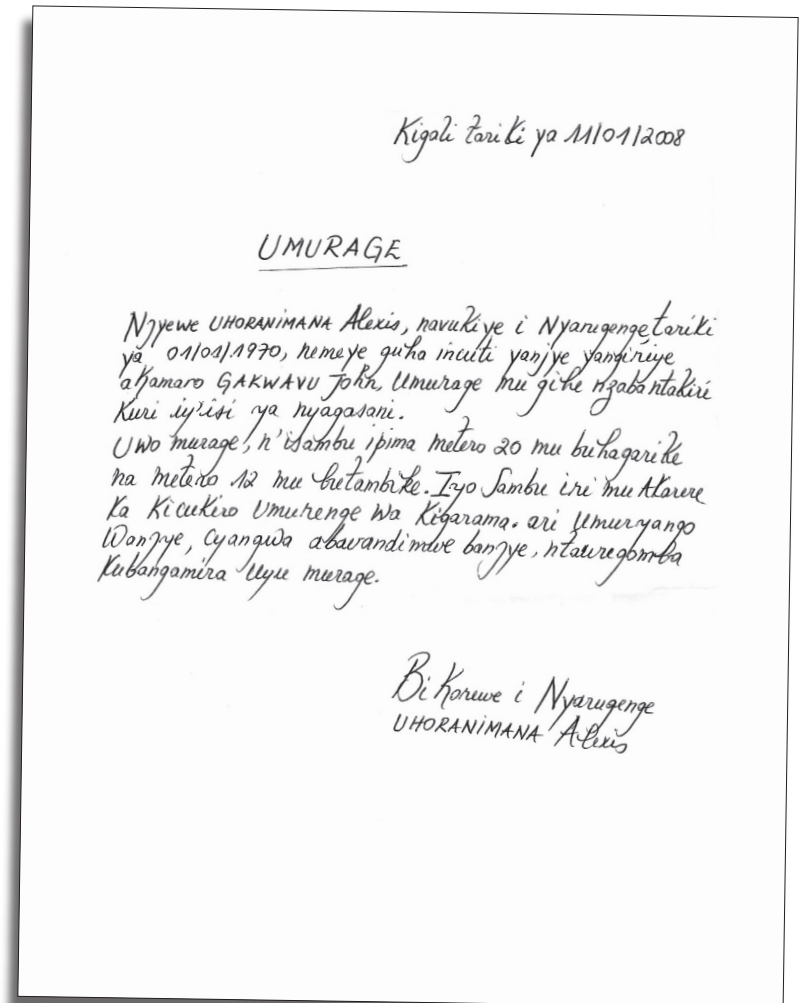 Kigali tariki ya 11/01/2008
UMURAGE
Njyewe UHORANIMANA Alexis, navukiye i Nyarugenge, tariki
ya 01/01/1970, nemeye guha incuti yanjye yangiriye
akamaro GAKWAVU John, Umurage mu gihe nzaba ntakiri
kuri iy'isi ya nyagasani.
Uwo murage, n'isambu ipima metero 20 mu buhagarike
na metero 12 mu butambike. Iyo Sambu iri mu Akarere
ka Kicukiro Umurenge wa Kigarama. ari Umuryango
Wanjye, Cyangwa abavandimwe banjye, ntawegomba
Kubangamira Uyu murage.
Bikorewe i Nyarugenge
UHORANIMANA Alexis